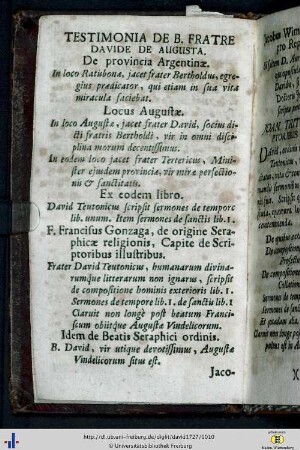 TESTIMONIA DE B. FRATRE
DAVIDE DE AUGUSTA.
De provincia Argentinæ.
In loco Ratisbonæ, jacet frater Bertholdus, egre-
gius prædicator, qui etiam in sua vita
miracula faciebat.
Locus Augustæ.
In loco Augustæ, jacet frater David, socius di-
cti fratris Bertholdi, vir in omni disci-
plina morum decentissimus.
In eodem loco jacet frater Tertericus, Mini-
ster ejusdem provinciæ, vir miræ perfectio-
nis & sanctitatis.
Ex eodem libro.
David Teutonicus scripsit sermones de tempore
lib. unum. Item sermones de sanctis lib. 1.
F. Francisus Gonzaga, de origine Sera-
phicæ religionis, Capite de Scri-
ptoribus illustribus.
Frater David Teutonicus, humanarum divina-
rumque litterarum non ignarus, scripsit
de compositione hominis exterioris lib. 1.
Sermones de tempore lib. 1. de sanctis lib. 1
Claruit non longè post beatum Franci-
scum obiitque Augustæ Vindelicorum.
Idem de Beatis Seraphici ordinis.
B. David, vir utique devotissimus, Augustæ
Vindelicorum situs est.
Jaco-
http://dl.ub.uni-freiburg.de/diglit/david1727/0010
© Universitätsbibliothek Freiburg